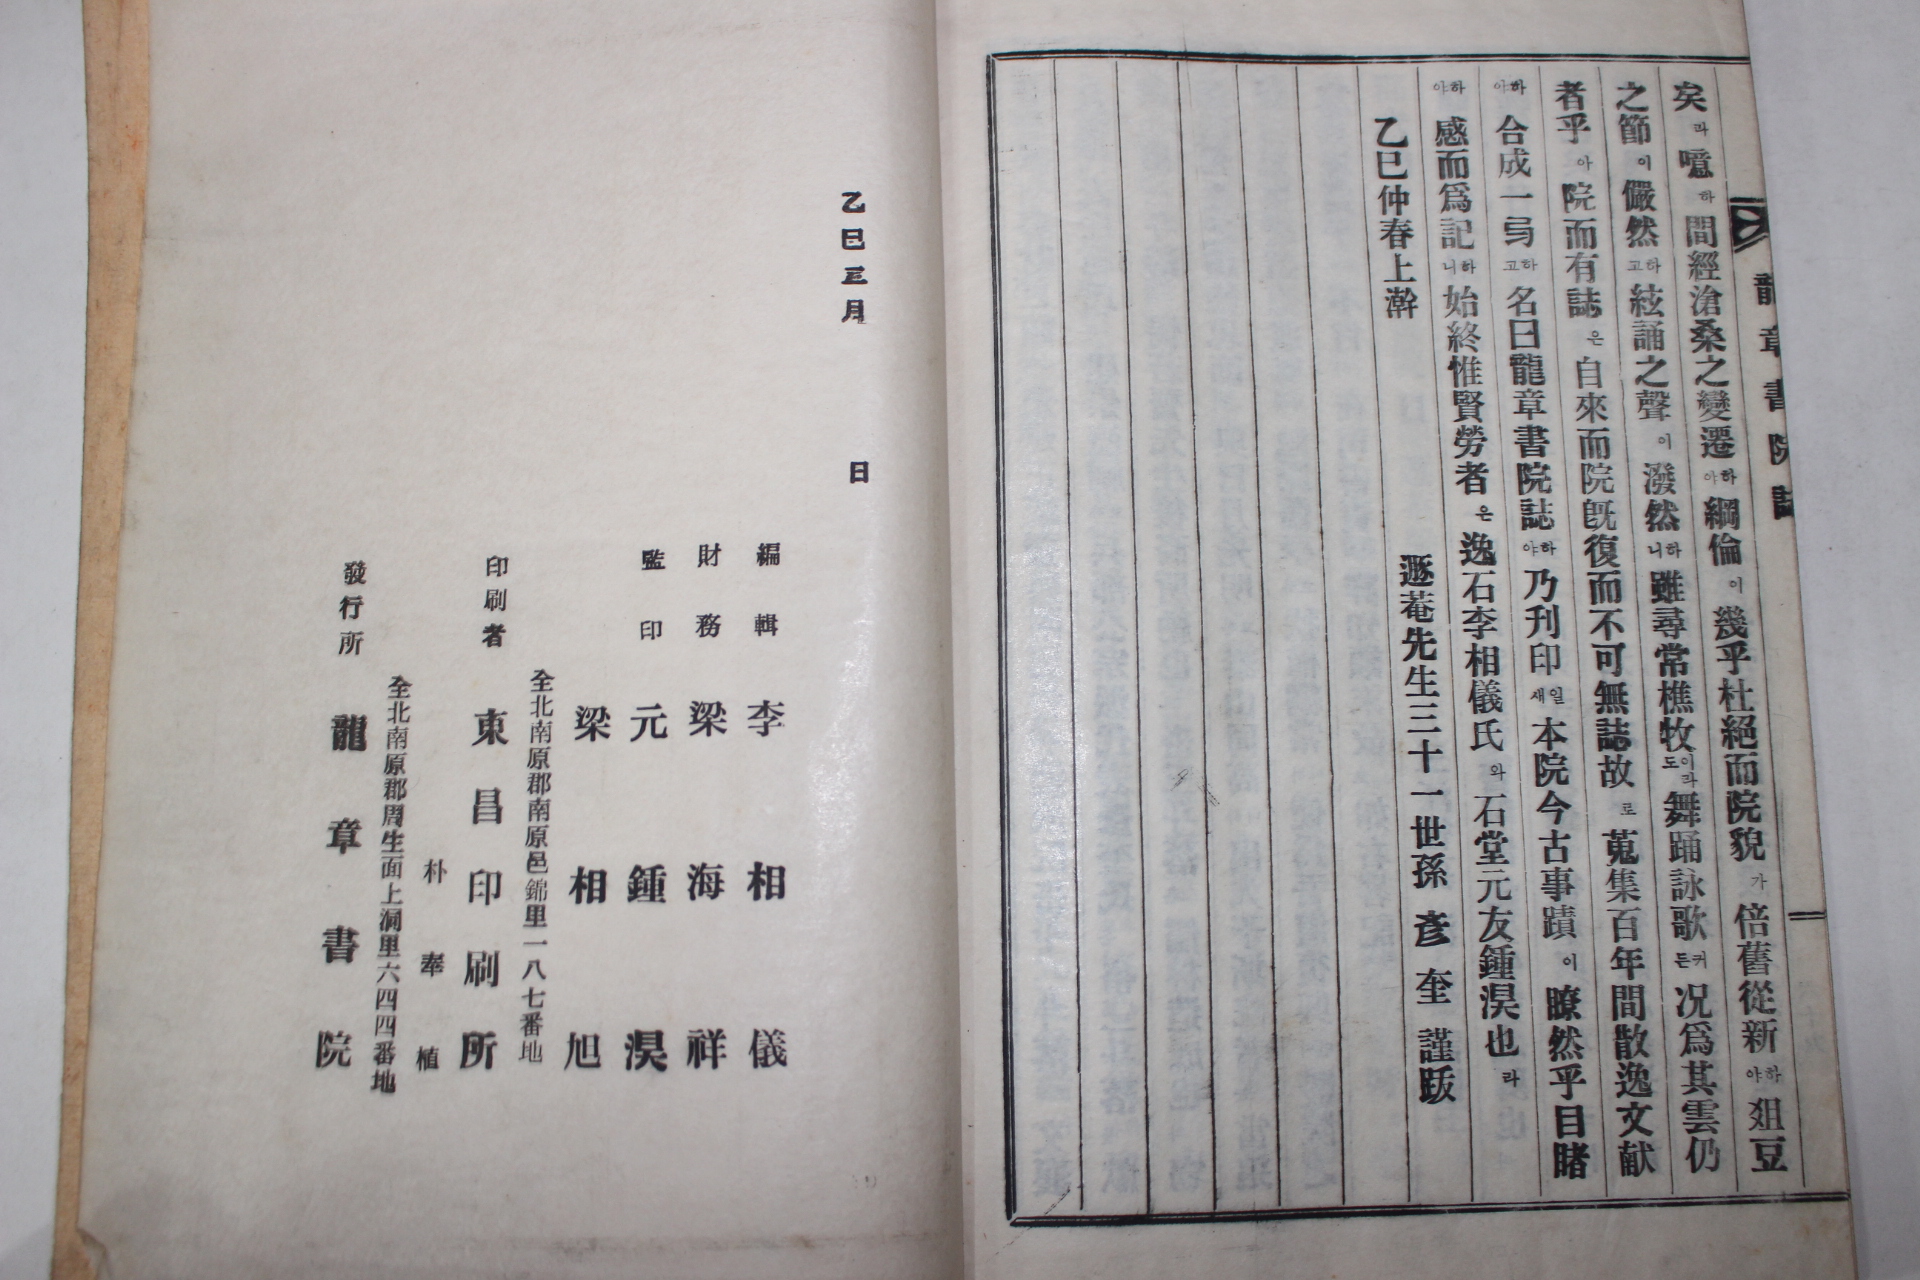 龍章書院誌
矣라噫하間經滄桑之變遷하야綱倫이幾乎杜絕而院貌가倍舊從新하야俎豆
之節이儼然하고絃誦之聲이潑然하니雖尋常樵牧이라도舞踊詠歌커든况爲其雲仍
者乎아院而有誌은自來而院旣復而不可無誌故로蒐集百年間散逸文献
하야合成一弓하고名曰龍章書院誌하야乃刊印일새本院今古事蹟이瞭然乎目睹
하야感而爲記하니始終惟賢勞者은逸石李相儀氏와石堂元友鍾淏也라
乙巳仲春上澣
遯菴先生三十一世孫 彦奎 謹跋
乙巳三月 日
編輯 李相儀
財務 梁海祥
監印 元鍾淏
梁相旭
全北南原郡南原邑錦里一八七番地
印刷者 東昌印刷所
朴奉植
全北南原郡周生面上洞里六四四番地
發行所 龍章書院